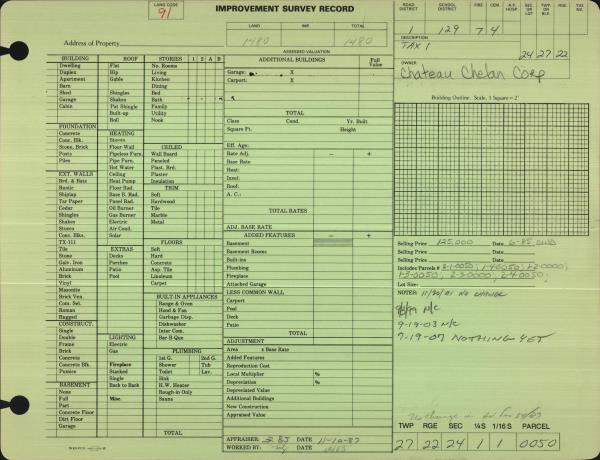 LAND CODE
91
IMPROVEMENT SURVEY RECORD
LAND IMP. TOTAL
1480 1480
ASSESSED VALUATION
Address of Property
ROAD DISTRICT SCHOOL DISTRICT FIRE CEM. A.F. HOSP SEC. OR LOT TWP. OR BLK. RGE. TAX NO.
129 7 4
DESCRIPTION
TAX 1 24 27 22
OWNER
Chateau Chelan Corp
BUILDING ROOF STORIES 1 2 A B
Dwelling Flat No. Rooms
Duplex Hip Living
Apartment Gable Kitchen
Barn Dining
Shed Shingles Bed
Garage Shakes Bath
Cabin Pat Shingle Family
Built-up Utility
Roll Nook
FOUNDATION
Concrete HEATING
Conc. Blk. Stoves
Stone, Brick Floor-Wall CEILED
Posts Pipeless Furn. Wall Board
Piles Pipe Furn. Paneled
Hot Water Plast. Brd.
EXT. WALLS Ceiling Plaster
Brd. & Bats Heat Pump Insulation
Rustic Floor Rad. TRIM
Shiplap Base B. Rad. Soft
Tar Paper Panel Rad. Hardwood
Cedar Oil Burner Tile
Shingles Gas Burner Marble
Shakes Electric Metal
Stucco Air Cond.
Conc. Blks. Solar
TX-111 FLOORS
Tile EXTRAS Soft
Stone Decks Hard
Galv. Iron Porches Concrete
Aluminum Patio Asp. Tile
Brick Pool Linoleum
Vinyl Carpet
Masonite
Brick Ven. BUILT-IN APPLIANCES
Com. Sel. Range & Oven
Roman Hood & Fan
Rugged Garbage Disp.
CONSTRUCT. Dishwasher
Single Inter Com.
Double LIGHTING Bar-B-Que
Frame Electric
Brick Gas PLUMBING
Concrete 1st G. 2nd G.
Concrete Blk. Fireplace Shower Tub
Pumice Stacked Toilet Lav.
Single Sink
BASEMENT Back to Back H.W. Heater
None Rough-in Only
Full Misc. Sauna
Part
Concrete Floor
Dirt Floor
Garage TOTAL
ADDITIONAL BUILDINGS Full Value
Garage: X
Carport: X
TOTAL
Class Cond. Yr. Built
Square Ft. Height
Eff. Age:
Rate Adj. − +
Base Rate
Heat:
Insl.:
Roof:
A. C.:
TOTAL RATES
ADJ. BASE RATE
ADDED FEATURES − +
Basement
Basement Rooms
Built-ins
Plumbing
Fireplace
Attached Garage
LESS COMMON WALL
Carport
Pool
Deck
Patio
TOTAL
ADJUSTMENT
Area x Base Rate
Added Features
Reproduction Cost
Local Multiplier %
Depreciation %
Depreciated Value
Additional Buildings
New Construction
Appraised Value
APPRAISER 285 DATE 11-10-87
WORKED BY: DATE
Building Outline: Scale, 1 Square = 2'
Selling Price 125,000 Date 6-85
Selling Price Date
Includes Parcels #
Lot Size:
NOTES: 11/20/01 NO CHANGE
N/C
9-19-03 N/C
7-19-07 NOTHING YET
TWP RGE SEC ¼S 1/16 S PARCEL
27 22 24 1 1 0050